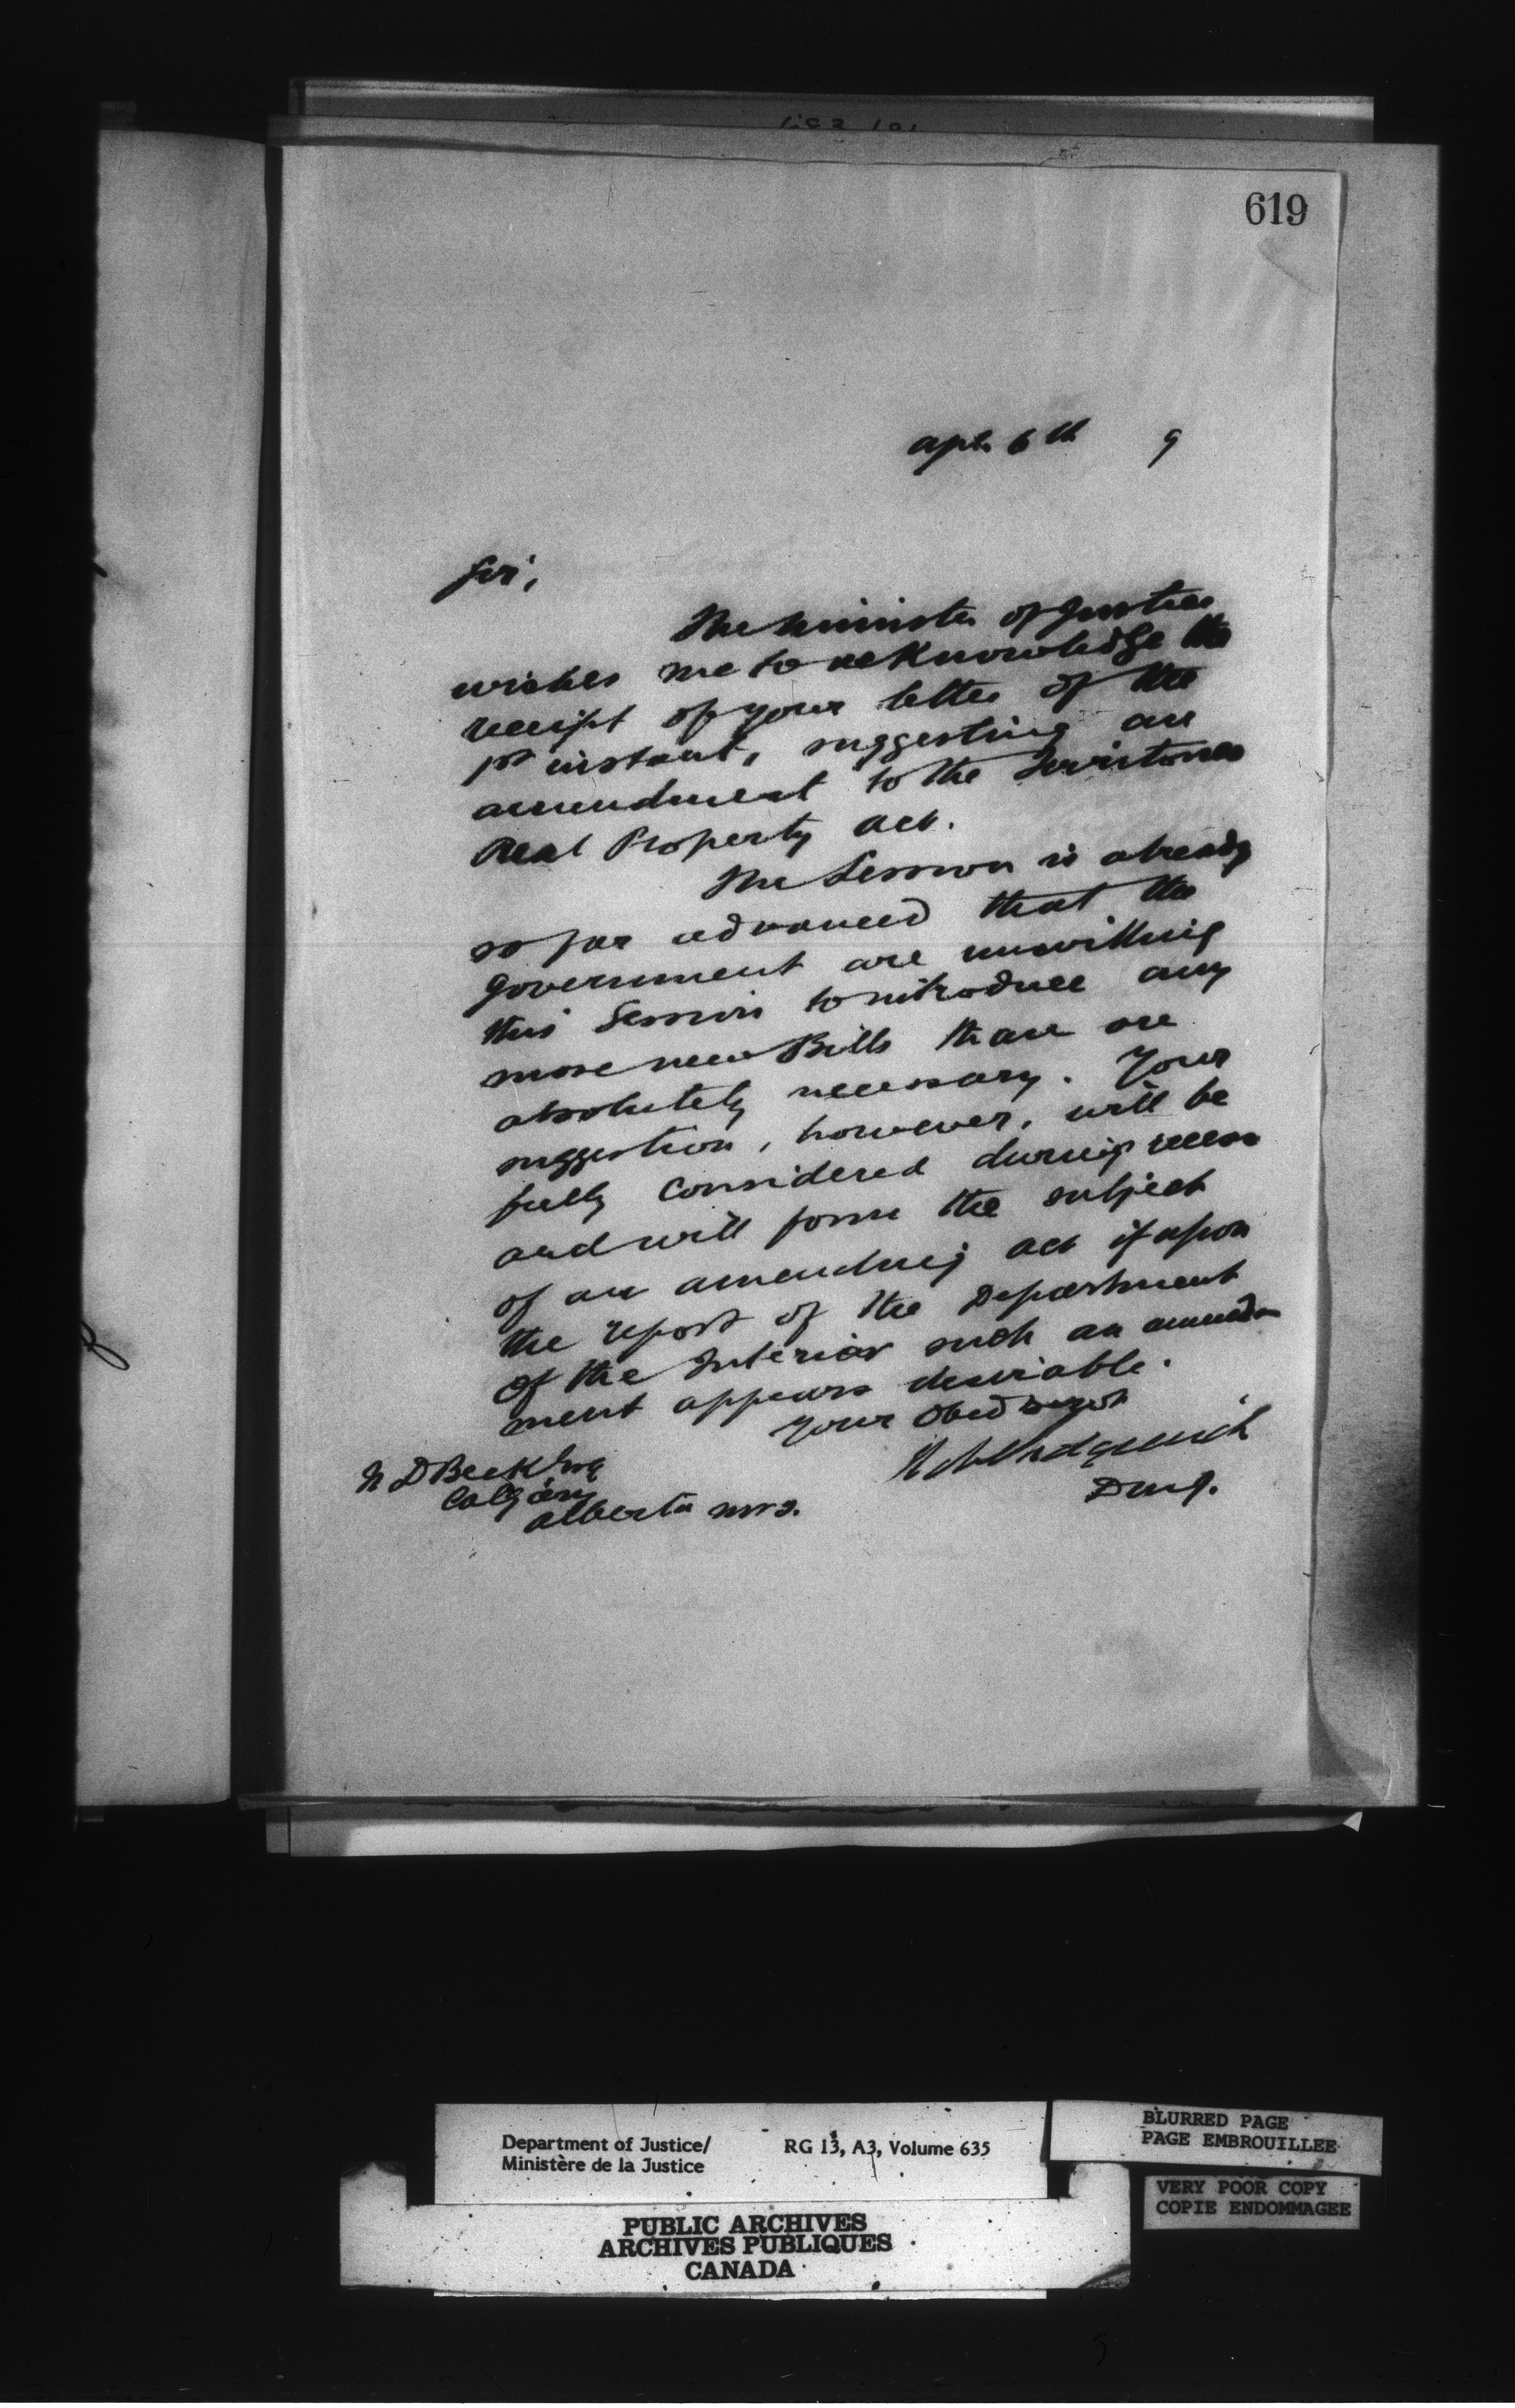 619
Apl. 6th 9
Sir,
The Minister of Justice
wishes me to acknowledge the
receipt of your letter of the
1st instant, suggesting an
amendment to the Territories
Real Property Act.
The Session is already
so far advanced that the
Government are unwilling
this Session to introduce any
more new Bills than are
absolutely necessary. Your
suggestion, however, will be
fully considered during recess
and will form the subject
of an amending Act if upon
the report of the Department
of the Interior such an amend-
ment appears desirable.
Your Obed
N D Beck Esq
Calgary
Alberta
Sedgewick
D M J.
Department of Justice/
Ministère de la Justice
RG 13, A3, Volume 635
PUBLIC ARCHIVES
ARCHIVES PUBLIQUES
CANADA
BLURRED PAGE
PAGE EMBROUILLEE
VERY POOR COPY
COPIE ENDOMMAGEE